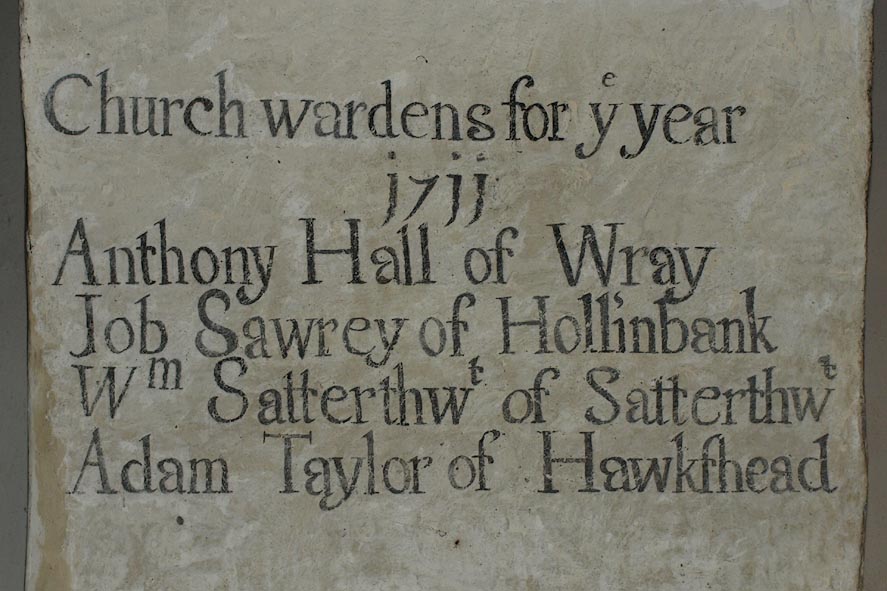 Church wardens for yͤ year
1711
Anthony Hall of Wray
Job Sawrey of Hollinbank
Wᵐ Satterthwᵗ of Satterthwᵗ
Adam Taylor of Hawkſhead